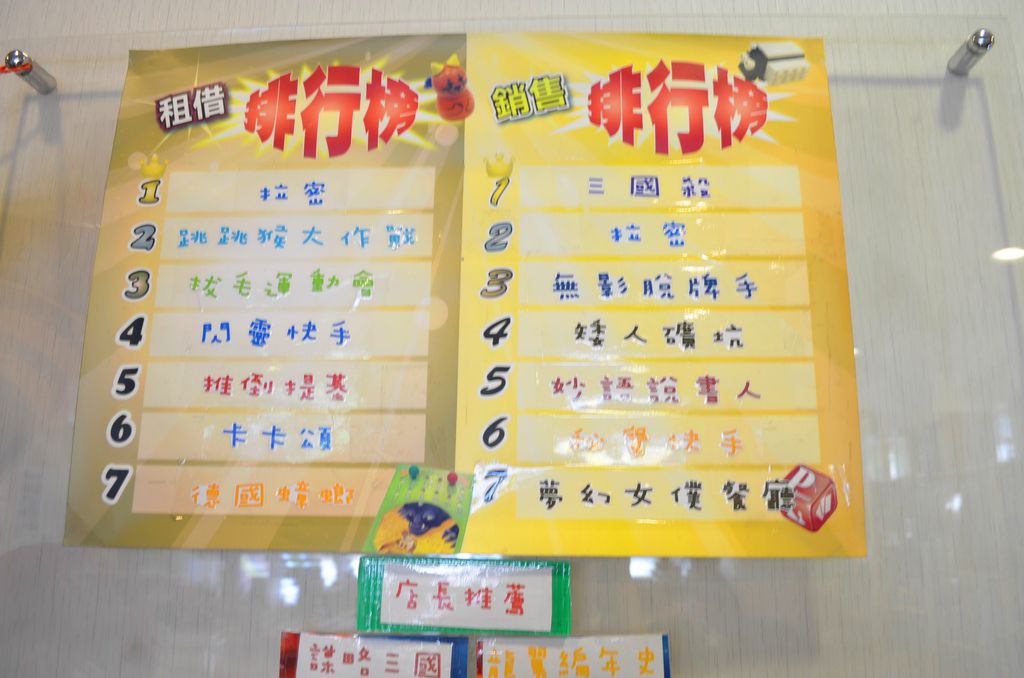 租借 排行榜
1 拉密
2 跳跳猴大作戰
3 拔毛運動會
4 閃靈快手
5 推倒提基
6 卡卡頌
7 德國蟑螂
銷售 排行榜
1 三國殺
2 拉密
3 無影脫牌手
4 矮人礦坑
5 妙語說書人
6 快手
7 夢幻女僕餐廳
店長推薦
謀略三國
龍翼編年史